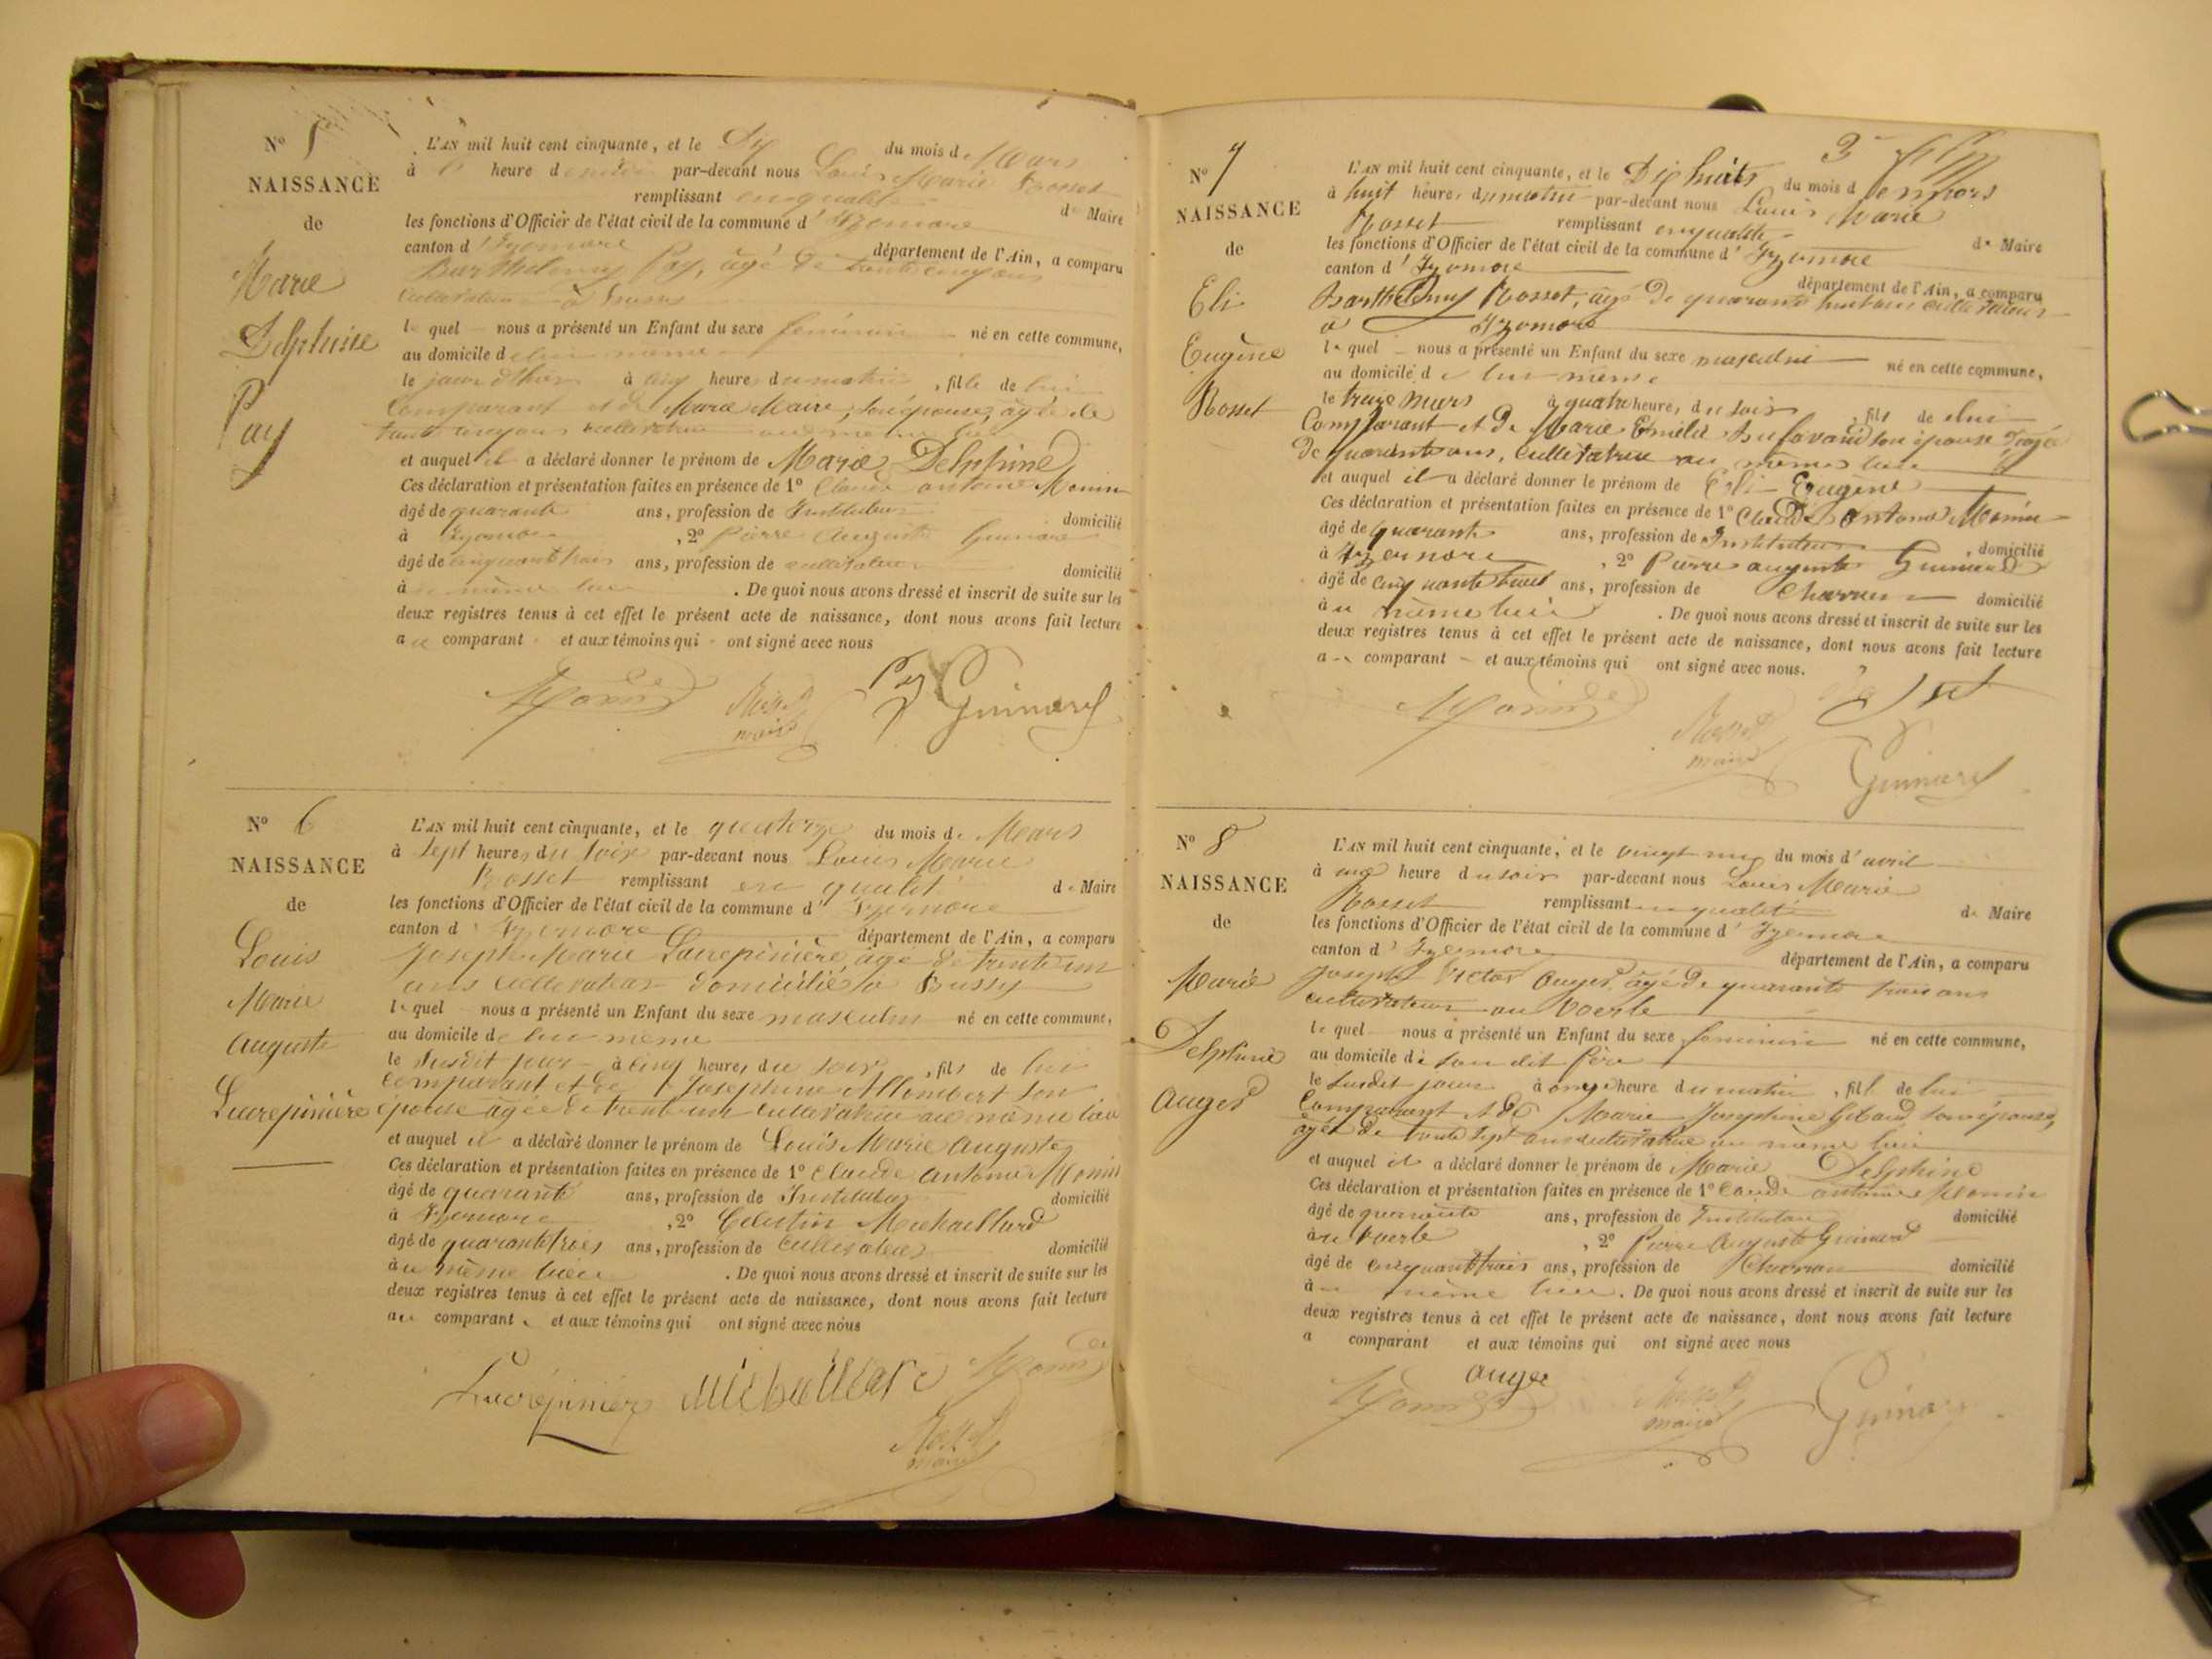 N° 5
NAISSANCE
de
Marie
Delphine
Pay
L'AN mil huit cent cinquante, et le Dix du mois de Mars
à heure d par-devant nous Louis Marie Rosset
remplissant en qualité de Maire
les fonctions d'Officier de l'état civil de la commune d' Izernore
canton d' Izernore département de l'Ain, a comparu
Barthelemy Pay, âgé de trente cinq ans
cultivateur à
lequel nous a présenté un Enfant du sexe feminin né en cette commune,
au domicile de lui même
le jour d'hier à cinq heures du matin, fille de lui
Comparant et de Marie Maire, son épouse, âgée de
trente cinq ans cultivatrice au même lieu
et auquel il a déclaré donner le prénom de Marie Delphine
Ces déclaration et présentation faites en présence de 1° Claude antoine Monin
âgé de quarante ans, profession de Instituteur domicilié
à Izernore, 2° Pierre Auguste Guinard
âgé de cinquante trois ans, profession de cultivateur domicilié
au même lieu. De quoi nous avons dressé et inscrit de suite sur les
deux registres tenus à cet effet le présent acte de naissance, dont nous avons fait lecture
au comparant et aux témoins qui ont signé avec nous
Monin Rosset maire Pay Guinard
N° 6
NAISSANCE
de
Louis
Marie
Auguste
Lucrepinière
L'AN mil huit cent cinquante, et le quatorze du mois de Mars
à Sept heures du soir par-devant nous Louis Marie
Rosset remplissant en qualité de Maire
les fonctions d'Officier de l'état civil de la commune d' Izernore
canton d' Izernore département de l'Ain, a comparu
Joseph Marie Lucrepinière, âgé de trente un
ans cultivateur domicilié à Bussy
lequel nous a présenté un Enfant du sexe masculin né en cette commune,
au domicile de lui même
le susdit jour à cinq heures du soir, fils de lui
comparant et de Josephine Allombert son
épouse âgée de trente un cultivatrice au même lieu
et auquel il a déclaré donner le prénom de Louis Marie Auguste
Ces déclaration et présentation faites en présence de 1° Claude antoine Monin
âgé de quarante ans, profession de Instituteur domicilié
à Izernore, 2° Celestin Michaillard
âgé de quarante trois ans, profession de Cultivateur domicilié
au même lieu. De quoi nous avons dressé et inscrit de suite sur les
deux registres tenus à cet effet le présent acte de naissance, dont nous avons fait lecture
au comparant et aux témoins qui ont signé avec nous
Lucrépinière Monin
Rosset maire
3
N° 7
NAISSANCE
de
Eli
Eugène
Rosset
L'AN mil huit cent cinquante, et le Dix huit du mois de mars
à huit heures du matin par-devant nous Louis Marie
Rosset remplissant en qualité de Maire
les fonctions d'Officier de l'état civil de la commune d' Izernore
canton d' Izernore département de l'Ain, a comparu
Barthelemy Rosset, âgé de quarante huit ans cultivateur
à Izernore
lequel nous a présenté un Enfant du sexe masculin né en cette commune,
au domicile de lui même
le treize mars à quatre heures du soir, fils de lui
Comparant et de Marie son épouse âgée
de quarante ans, cultivatrice au même lieu
et auquel il a déclaré donner le prénom de Eli Eugène
Ces déclaration et présentation faites en présence de 1° Claude antoine Monin
âgé de quarante ans, profession de Instituteur, domicilié
à Izernore, 2° Pierre auguste Guinard
âgé de cinquante ans, profession de Charron domicilié
au même lieu. De quoi nous avons dressé et inscrit de suite sur les
deux registres tenus à cet effet le présent acte de naissance, dont nous avons fait lecture
au comparant et aux témoins qui ont signé avec nous.
Monin Rosset maire Guinard
N° 8
NAISSANCE
de
Marie
Delphine
Auger
L'AN mil huit cent cinquante, et le vingt du mois d'avril
à une heure du soir par-devant nous Louis Marie
Rosset remplissant en qualité de Maire
les fonctions d'Officier de l'état civil de la commune d' Izernore
canton d' Izernore département de l'Ain, a comparu
Joseph Victor Auger, âgé de quarante trois ans
cultivateur au Voerle
lequel nous a présenté un Enfant du sexe feminin né en cette commune,
au domicile de son dit père
le susdit jour à onze heure du matin, fille de lui
Comparant et de Marie Josephine son épouse,
âgée de trente sept ans cultivatrice au même lieu
et auquel il a déclaré donner le prénom de Marie Delphine
Ces déclaration et présentation faites en présence de 1° Claude antoine Monin
âgé de quarante ans, profession de Instituteur domicilié
au Voerle, 2° Pierre Auguste Guinard
âgé de cinquante trois ans, profession de Charron domicilié
au même lieu. De quoi nous avons dressé et inscrit de suite sur les
deux registres tenus à cet effet le présent acte de naissance, dont nous avons fait lecture
a comparant et aux témoins qui ont signé avec nous
Monin auger Rosset maire Guinard